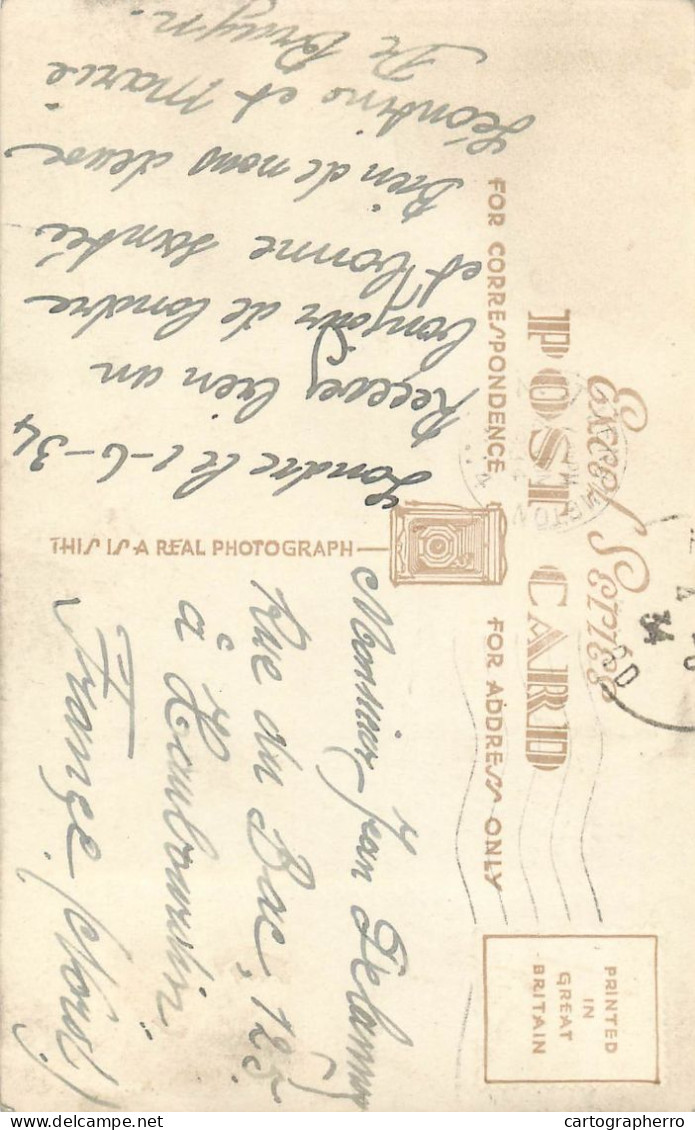 Excel Series
POST CARD
FOR CORRESPONDENCE
FOR ADDRESS ONLY
PRINTED
IN
GREAT
BRITAIN
THIS IS A REAL PHOTOGRAPH
Londre le 1-6-34
Recevez bien un
bonjour de londre
et bonne santée
bien de nous deux
Léontine et Marie
De Bruyn.
Monsieur Jean Delannoy
Rue du Bac, 125
à Houbourdin
France (Nord)
34
cartographerro